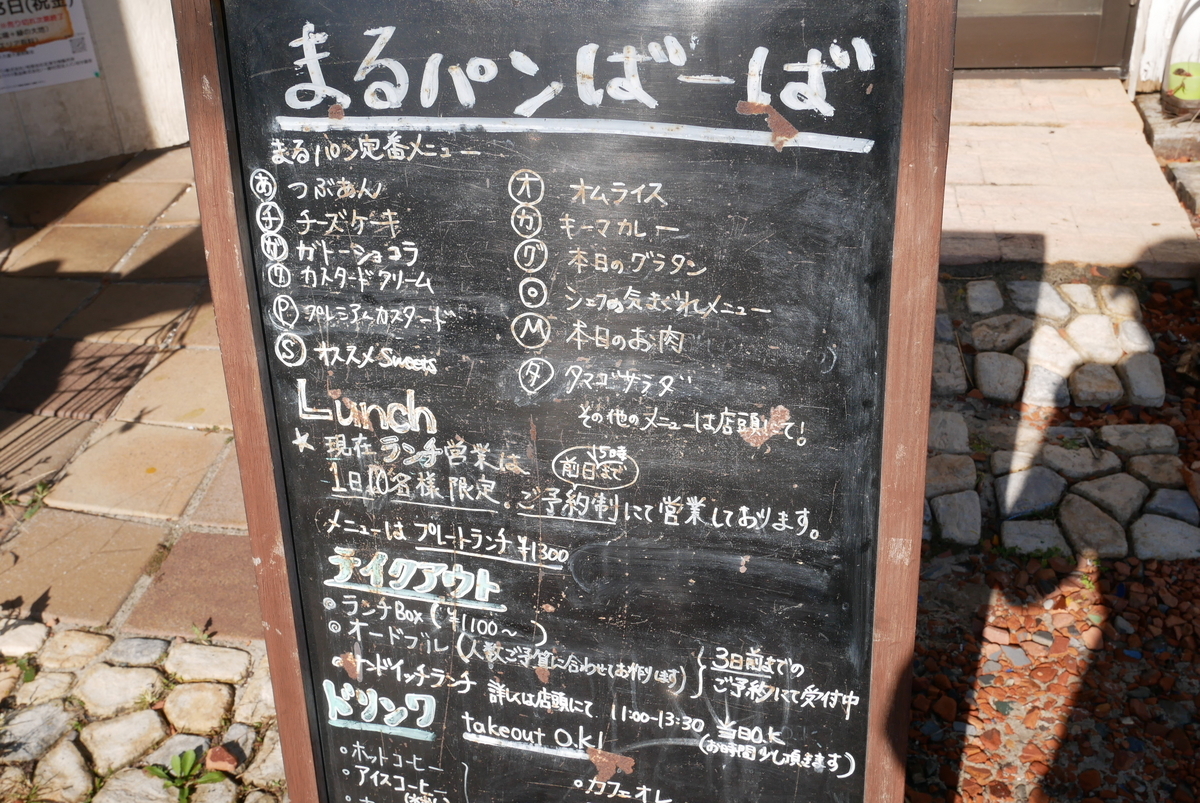 まるパンばーば
まるパン定番メニュー
あ つぶあん
チ チーズケーキ
ガ ガトーショコラ
ク カスタードクリーム
P プレミアムカスタード
S オススメSweets
オ オムライス
カ キーマカレー
グ 本日のグラタン
シェフの気まぐれメニュー
M 本日のお肉
タ タマゴサラダ
その他のメニューは店頭にて!
Lunch
★ 現在ランチ営業は
1日10名様限定。ご予約制にて営業しております。
前日15時まで
メニューは プレートランチ ¥1300
テイクアウト
◎ ランチBox (¥1100〜)
◎ オードブル (人数ご予算に合わせてお作ります)
3日前までの
ご予約にて受付中
サンドイッチランチ 詳しくは店頭にて 11:00-13:30 当日O.K
(お時間少し頂きます)
ドリンク
takeout O.K!
○ ホットコーヒー
○ アイスコーヒー
○ カフェオレ